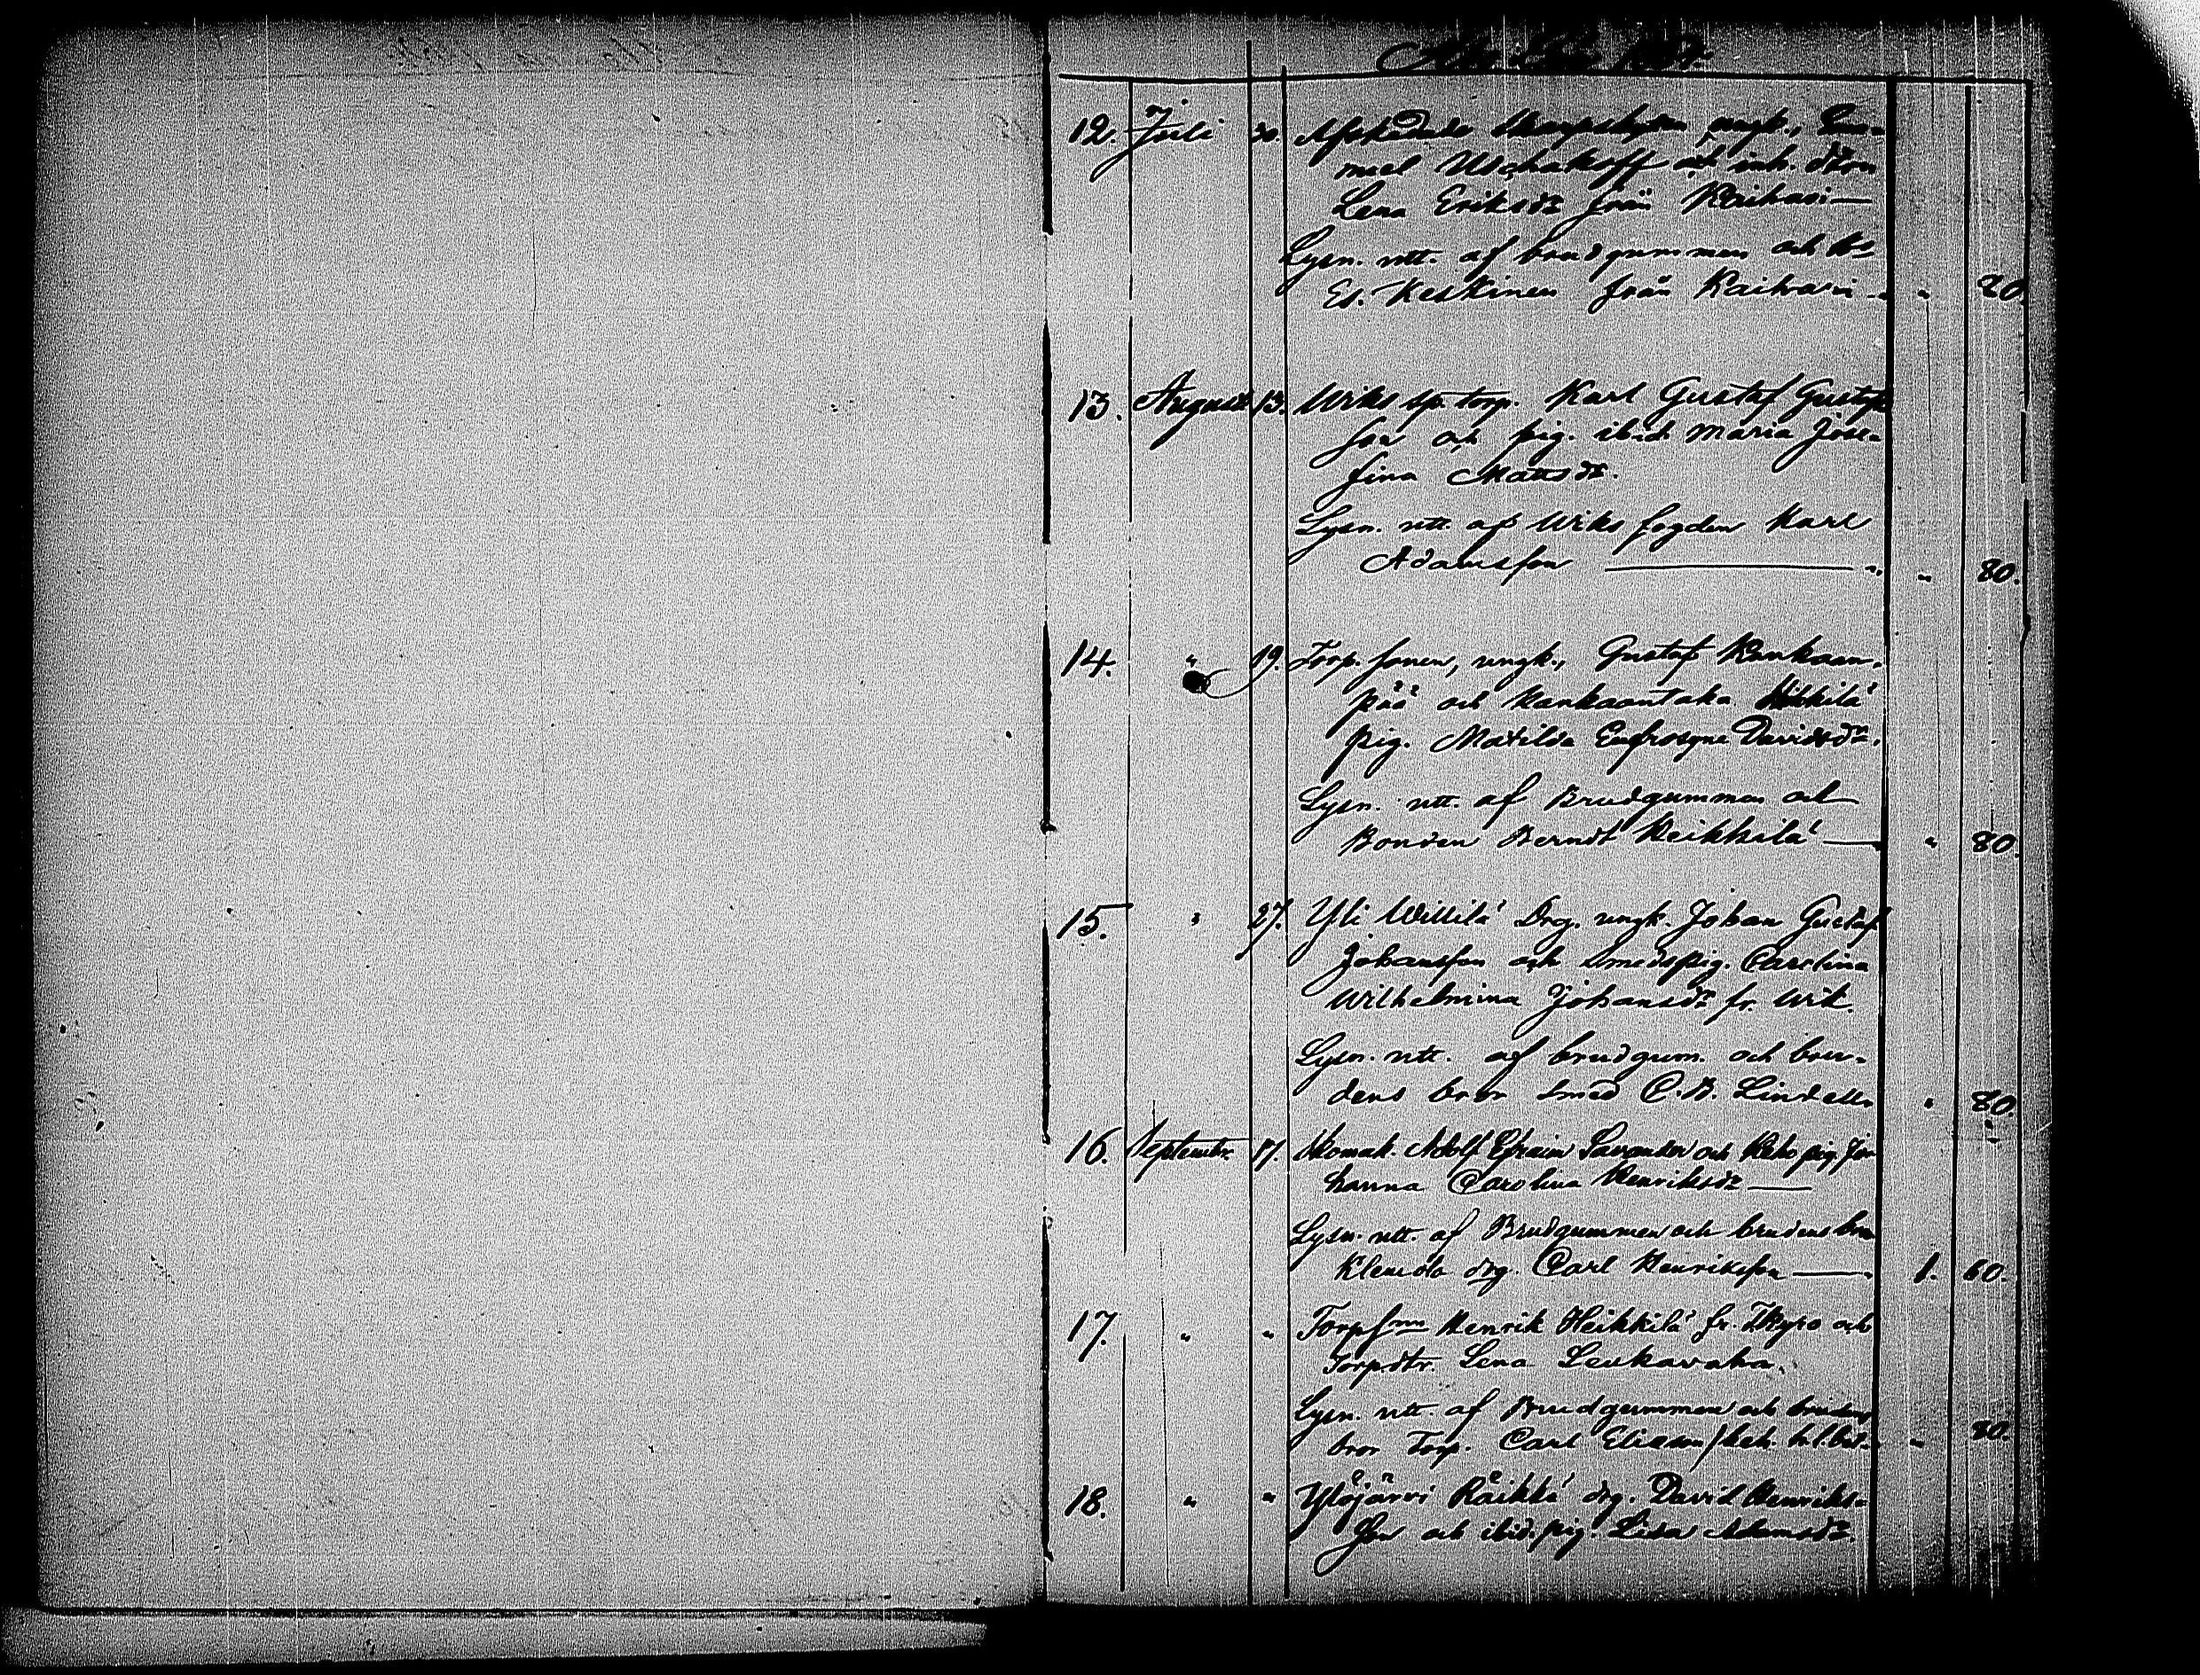 12. Juli 30. Afskedade ungk.,
Uschakoff och inh. dtrn
Lena Eriksdr från
Lysn. utt. af brudgummen och
Es. Keskinen från " 80.
13. August 13. Wiks sp. torp. Karl Gustaf Gustafs
son och pig. ibid. Maria Jose-
fina Mattsdr.
Lysn. utt. af Wiks fogden Karl
Adamsson " 80.
14. " 19. Torp. sonen, ungk., Gustaf Kankaan-
pää och Kankaantaka Heikkilä
pig. Matilda Eufrosyne Davidsdr.
Lysn. utt. af Brudgummen och
Bonden Berndt Heikkilä " 80.
15. " 27. Yli Willilä Drg. ungk. Johan Gustaf
Johansson och Smedspig. Carolina
Wilhelmina Johansdr fr. Wik.
Lysn. utt. af brudgum. och bru-
dens bror Smed C. B. Lindell " 80.
16. Septembr. 17. Skomak. Adolf Efraim Savander och Keho pig. Jo-
hanna Carolina Henriksdr
Lysn. utt. af Brudgummen och brudens bror
Klemola drg. Carl Henriksson 1. 60.
17. " " Torpsnn Henrik Heikkilä fr. Ikyro och
Torpdtr. Lena Leukavaha.
Lysn. utt. af Brudgummen och brudens
bror Torp. Carl Eliasson " 80.
18. " " Ylöjärvi Räikkä drg. David Henriks-
son och ibid. pig. Lisa Adamsdr.